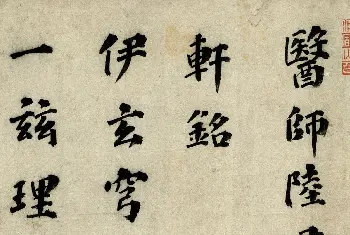 醫師陸
軒銘
伊玄穹
一茲理